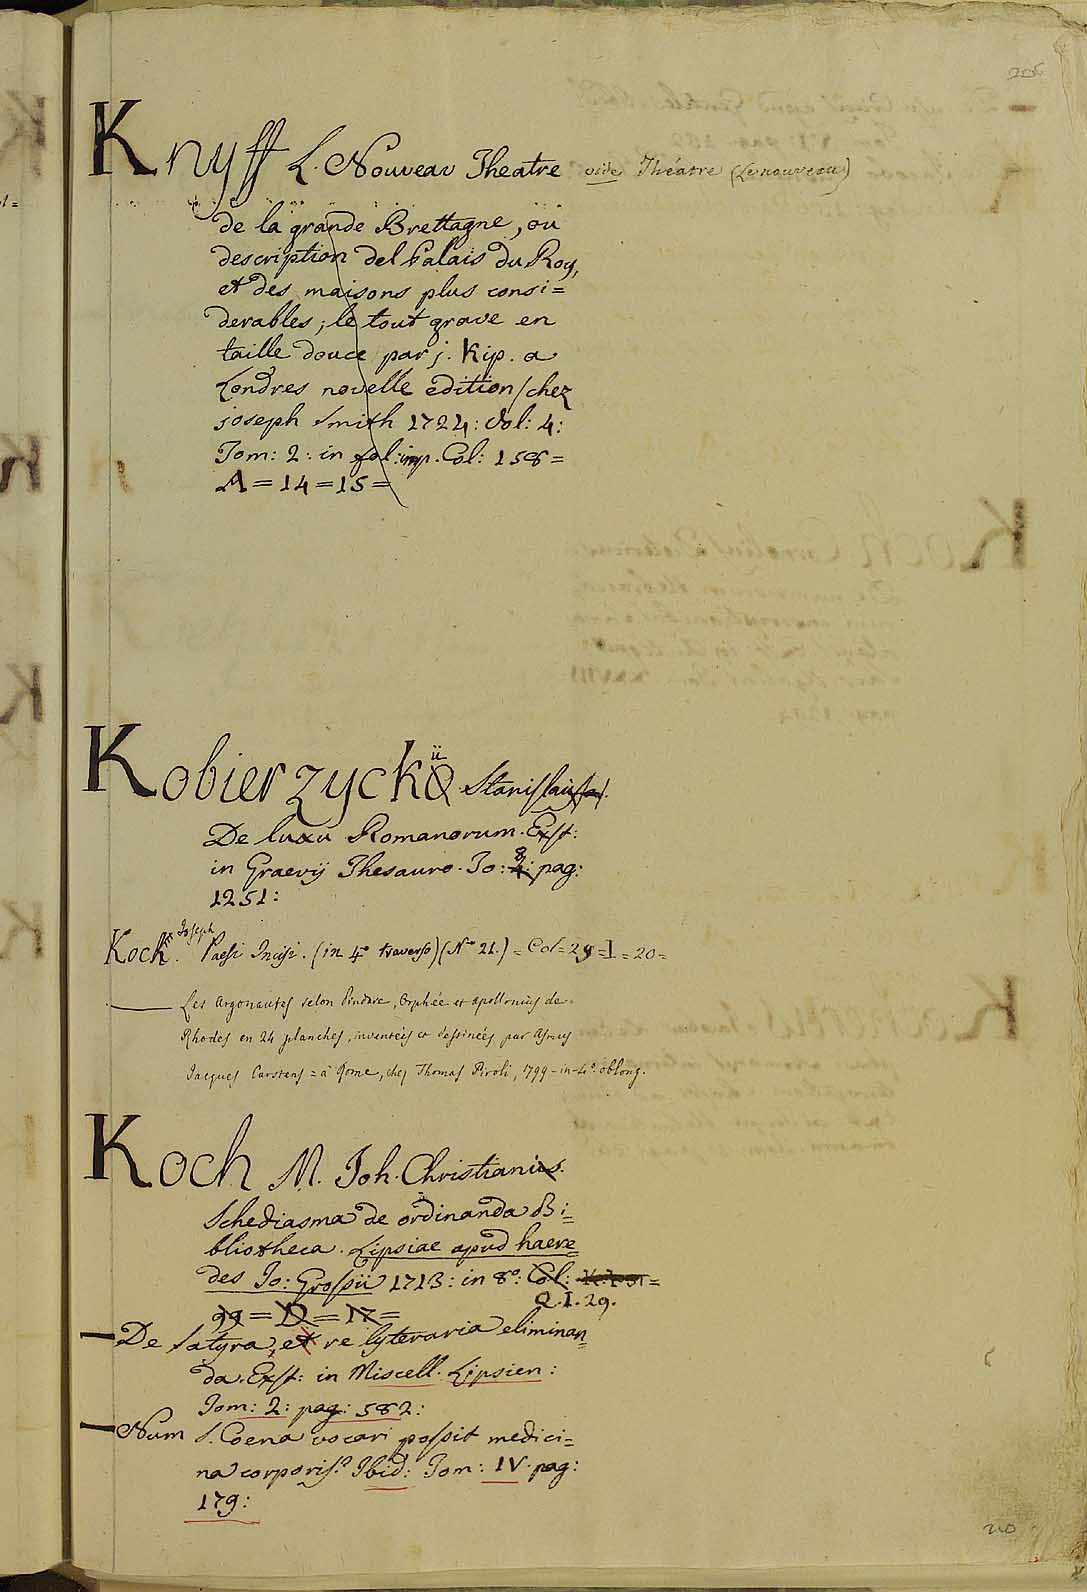 Knyff L. Nouveau Theatre vide Théatre (Le nouveau)
de la grande Brettagne, ou
description del Palais du Roy,
et des maisons plus consi=
derables; le tout grave en
taille douce par j. Kip. a
Londres novelle edition/chez
joseph Smith 1724: Vol: 4:
Tom: 2: in fol: imp. Col: 158=
A=14=15=
Kobierzyckii Stanislai
De luxu Romanorum. Ext:
in Graevij Thesauro. To: 8: pag:
1251:
Koch. Joseph Paesi Incisi. (in 4º traverso) (Nº 21.) = Col=29=I=20=
Les Argonautes selon Pindare, Orphée et apollonius de
Rhodes en 24 planches, inventées et dessinées par Asmus
Jacques Carstens = à Rome, chez Thomas Piroli, 1799-in-4º oblong.
Koch M. Joh. Christianus.
Schediasma de ordinanda Bi=
bliotheca. Lipsiae apud haere=
des Jo: Grossii 1713: in 8º: Col:
Q.I.29.
99=D=17=
De Satyra, et re lyteraria eliminan=
da. Ext: in Miscell. Lipsien:
Tom: 2: pag: 582:
Num S. Coena vocari possit medici=
na corporis? Ibid: Tom: IV. pag:
179:
210